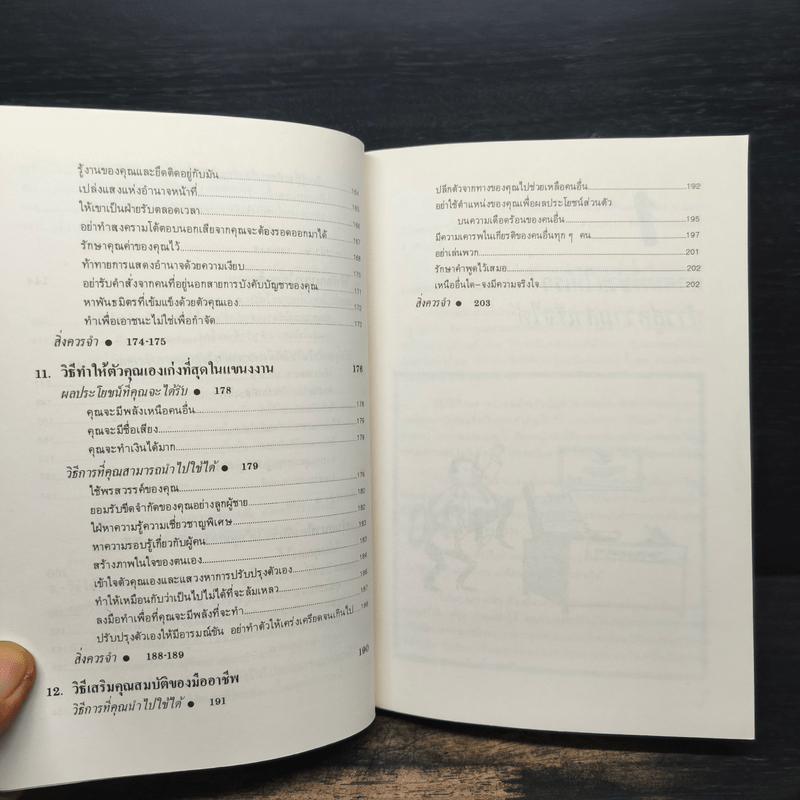 รู้งานของคุณและยึดติดอยู่กับมัน 164
เปล่งแสงแห่งอำนาจหน้าที่ 165
ให้เขาเป็นฝ่ายรับตลอดเวลา 166
อย่าทำสงครามโต้ตอบนอกเสียจากคุณจะต้องรอดออกมาได้ 167
รักษาคุณค่าของคุณไว้
ท้าทายการแสดงอำนาจด้วยความเงียบ 170
อย่ารับคำสั่งจากคนที่อยู่นอกสายการบังคับบัญชาของคุณ 171
หาพันธมิตรที่เข้มแข็งด้วยตัวคุณเอง 172
ทำเพื่อเอาชนะไม่ใช่เพื่อกำจัด 173
สิ่งควรจำ ● 174-175
11. วิธีทำให้ตัวคุณเองเก่งที่สุดในแขนงงาน 176
ผลประโยชน์ที่คุณจะได้รับ ● 178
คุณจะมีพลังเหนือคนอื่น 178
คุณจะมีชื่อเสียง 179
คุณจะทำเงินได้มาก 179
วิธีการที่คุณสามารถนำไปใช้ได้ ● 179
ใช้พรสวรรค์ของคุณ 179
ยอมรับขีดจำกัดของคุณอย่างลูกผู้ชาย 180
ใฝ่หาความรู้ความเชี่ยวชาญพิเศษ 182
หาความรอบรู้เกี่ยวกับผู้คน 183
สร้างภาพในใจของตนเอง 183
เข้าใจตัวคุณเองและแสวงหาการปรับปรุงตัวเอง 184
ทำให้เหมือนกับว่าเป็นไปไม่ได้ที่จะล้มเหลว 186
ลงมือทำเพื่อที่คุณจะมีพลังที่จะทำ 187
ปรับปรุงตัวเองให้มีอารมณ์ขัน อย่าทำตัวให้เคร่งเครียดจนเกินไป 188
สิ่งควรจำ ● 188-189
12. วิธีเสริมคุณสมบัติของมืออาชีพ 190
วิธีการที่คุณนำไปใช้ได้ ● 191
ปลีกตัวจากทางของคุณไปช่วยเหลือคนอื่น 192
อย่าใช้ตำแหน่งของคุณเพื่อผลประโยชน์ส่วนตัว
บนความเดือดร้อนของคนอื่น 195
มีความเคารพในเกียรติของคนอื่นทุก ๆ คน 197
อย่าเล่นพวก 201
รักษาคำพูดไว้เสมอ 202
เหนืออื่นใด-จงมีความจริงใจ 202
สิ่งควรจำ ● 203